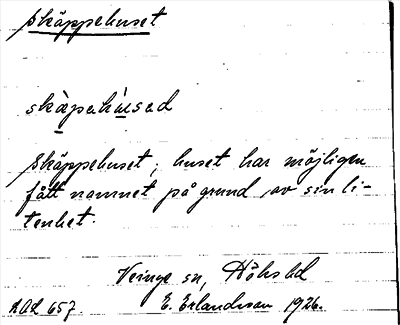 Skäppehuset
skäpahùsəd
Skäppehuset; huset har möjligen
fått namnet på grund av sin li-
tenhet.
Veinge sn, Höks hd
LAL 657. E. Erlandsson 1926.